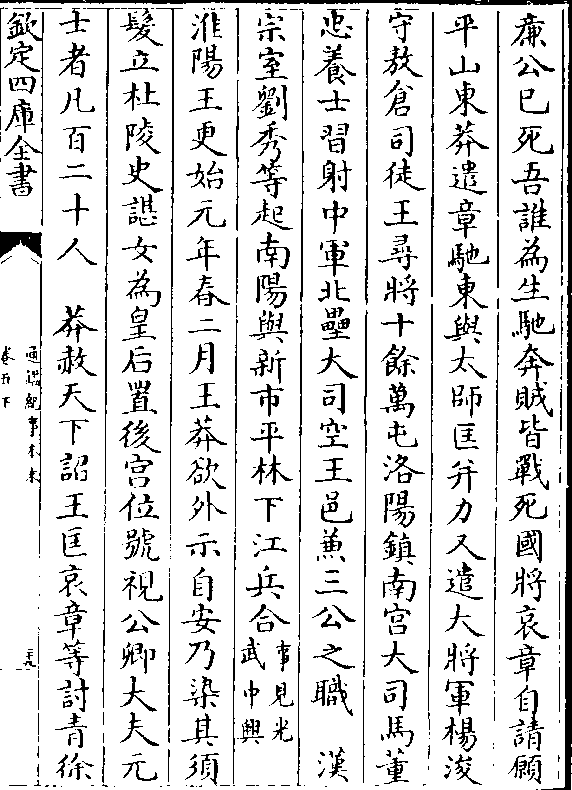 廉公已死吾誰為生馳奔賊皆戰死國將哀章自請願
平山東莽遣章馳東與太師匡并力又遣大將軍楊浚
守敖倉司徒王尋將十餘萬屯洛陽鎮南宮大司馬董
忠養士習射中軍北壘大司空王邑兼三公之職　漢
宗室劉秀等起南陽與新市平林下江兵合事見光武中興
淮陽王更始元年春二月王莽欲外示自安乃染其須
髮立杜陵史諶女為皇后置後宮位號視公卿大夫元
士者凡百二十人　莽赦天下詔王匡哀章等討青徐
欽定四庫全書
通鑑紀事本末
卷五下
三九